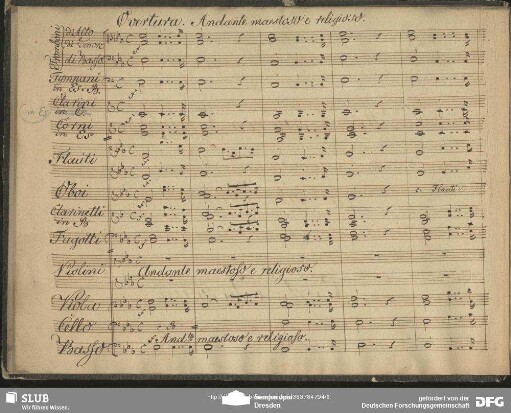 Overtura. Andante maestoso e religioso.
Tromboni
di Alto
di Tenore
di Basso
Tympani
in Es. B.
Clarini
in Es
Corni
in Es
Flauti
Oboi
c. Flauti
Clarinetti
in B
Fagotti
Violini Andante maestoso e religioso.
Viola
Cello
Basso And.te maestoso e religioso.
SLUB
Wir führen Wissen.
Dresden
gefördert von der
Deutschen Forschungsgemeinschaft
DFG